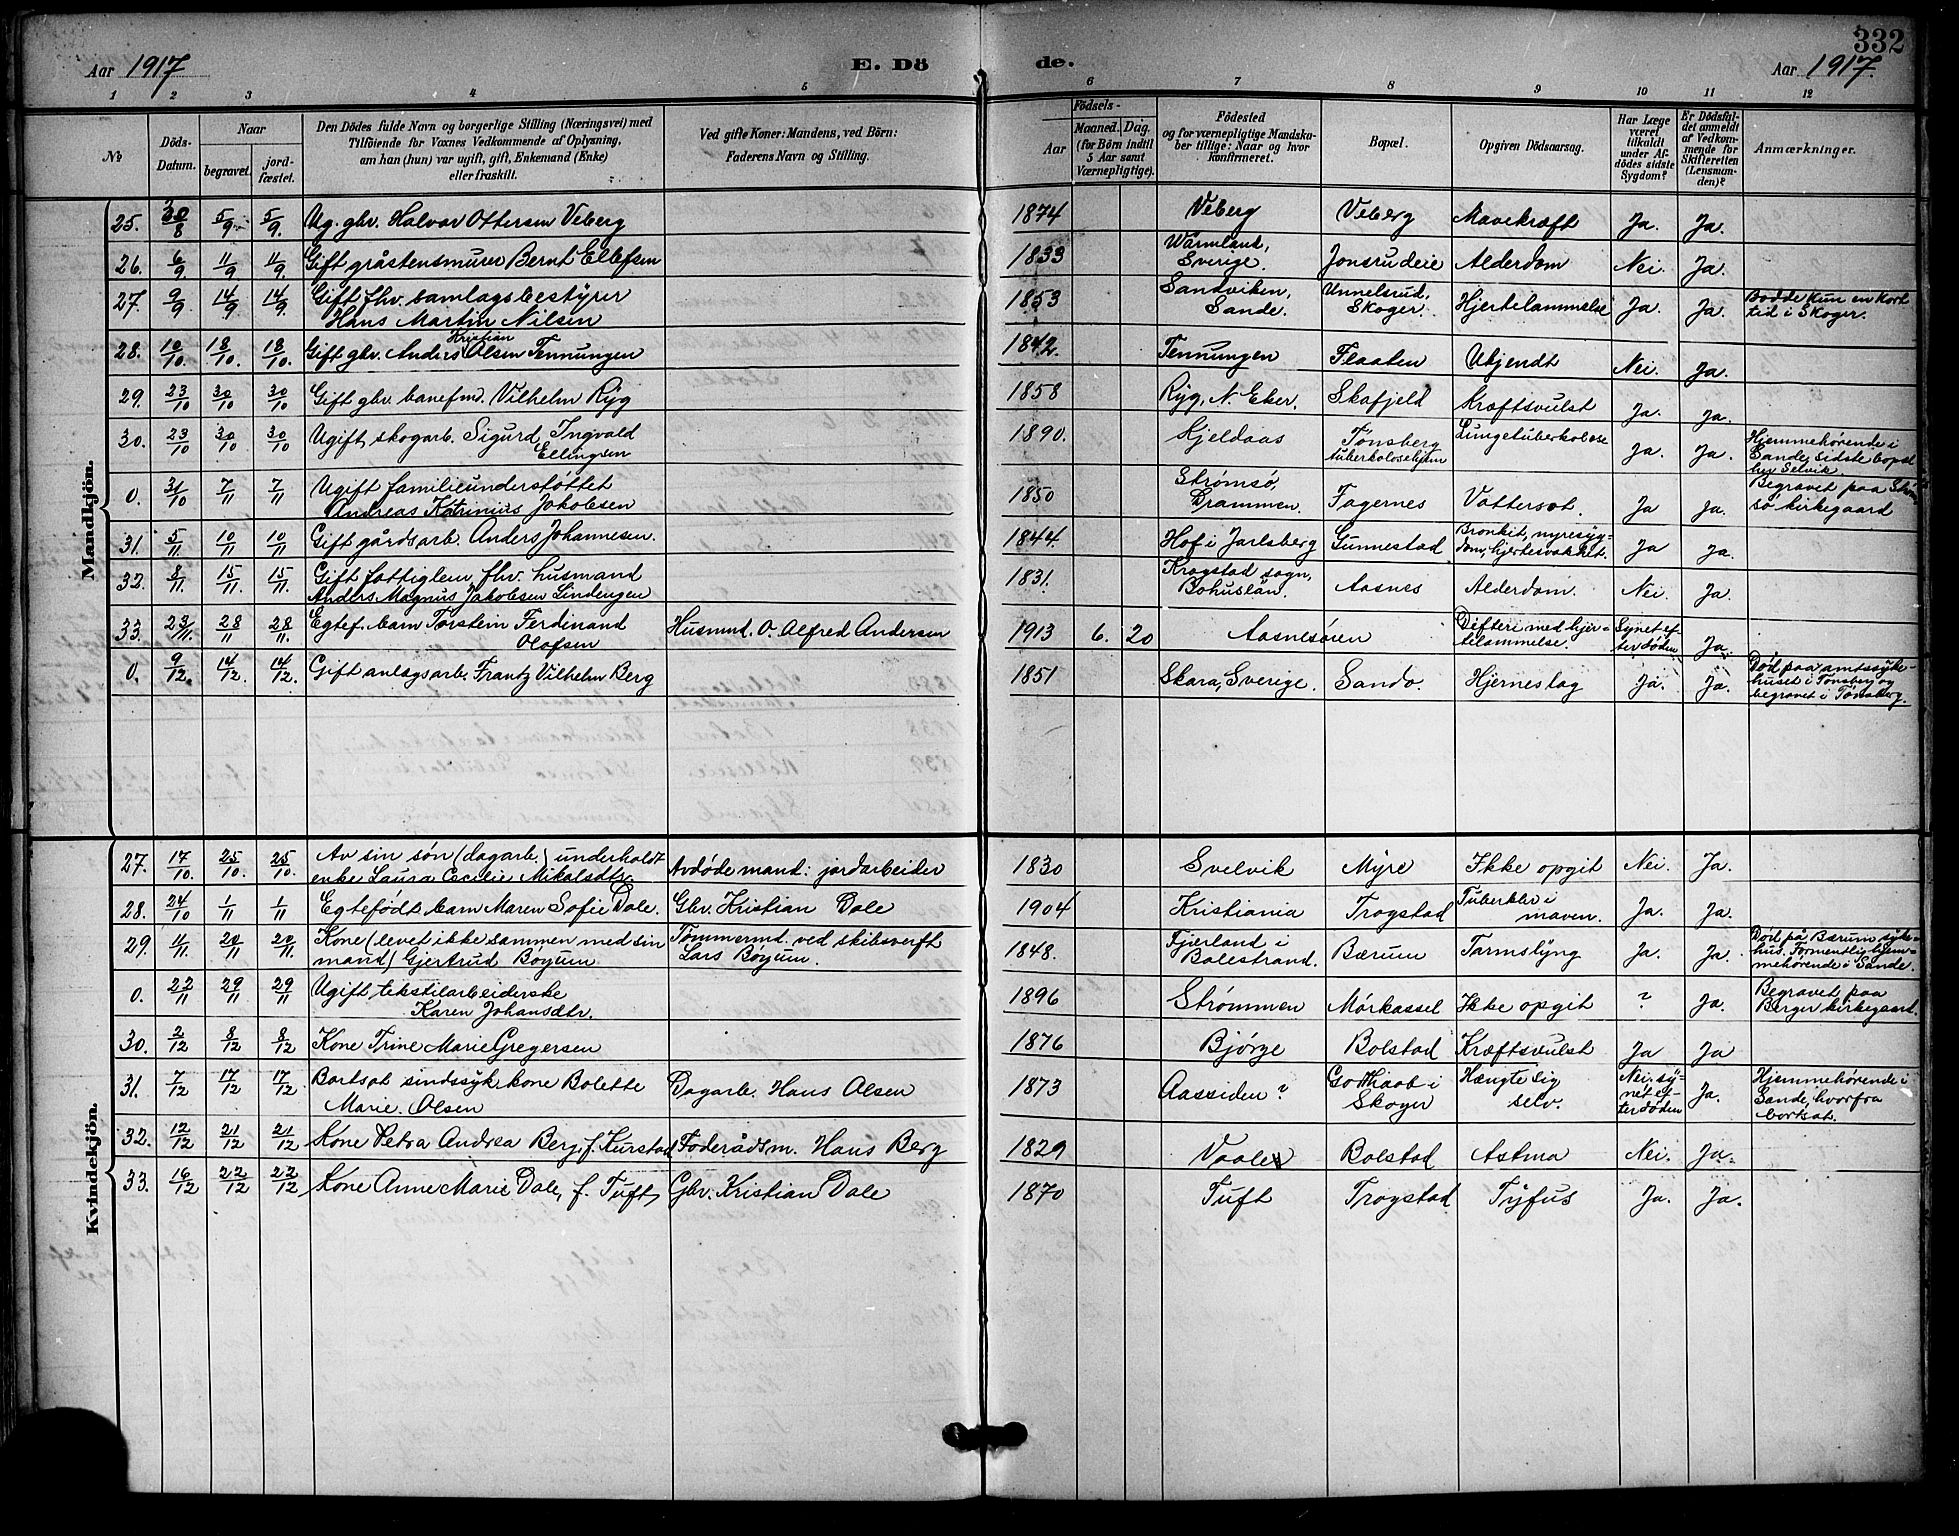 332
Aar 1917 E. Dö de. Aar 1917.
1 2 3 4 5 6 7 8 9 10 11 12
No
Döds-Datum.
Naar
begravet.
jord-fæstet.
Den Dödes fulde Navn og borgerlige Stilling (Næringsvei) med
Tilföiende for Voxnes Vedkommende af Oplysning,
om han (hun) var ugift, gift, Enkemand (Enke)
eller fraskilt.
Ved gifte Koner: Mandens, ved Börn:
Faderens Navn og Stilling.
Födsels-
Aar
Maaned. Dag.
(for Börn indtil
5 Aar samt
Værnepligtige).
Födested
og for værnepligtige Mandska-
ber tillige: Naar og hvor
konfirmeret.
Bopæl.
Opgiven Dödsaarsag.
Har Læge
været
tilkaldt
under Af-
dödes sidste
Sygdom?
Er Dödsfal-
det anmeldt
af Vedkom-
mende for
Skifteretten
(Lensman-
den)?
Anmærkninger.
Mandkjön.
25. 30/8 5/9 5/9 Ug. gbr. Halvor Ottersen Veberg 1874 Veberg Veberg Mavekræft Ja. Ja.
26. 6/9 11/9 11/9 Gift gråstensmurer Bernt Ellefsen 1833 Wärmland, Sverige. Jonsrudeie Alderdom Nei. Ja.
27. 9/9 14/9 14/9 Gift fhv. samlagsbestyrer
Hans Martin Nilsen 1853 Sandviken, Sande. Unnelsrud, Skoger. Hjertelammelse Ja. Ja. Bodde kun en kort tid i Skoger.
28. 10/10 18/10 18/10 Gift gbr. Anders Kristian Olsen Tennungen 1842. Tennungen Flaaten Ubjendt Nei. Ja.
29. 23/10 30/10 30/10 Gift gbr. banefm. Vilhelm Ryg 1858 Ryg, N. Eker. Skafjeld Kræftsvulst Ja. Ja.
30. 23/10 30/10 30/10 Ugift skogarb. Sigurd Ingvald
Ellingsen 1890. Hjeldaas Tønsberg tuberkolosehjem Lungetuberkolose Ja. Ja. Hjemmehørende i Sande, sidste bopæl her Selvik.
0. 31/10 7/11 7/11 Ugift familieunderstøttet
Andreas Katrinius Jakobsen 1850 Strømsø, Drammen. Fagernes Vattersot. Ja Ja. Begravet paa Strømsø kirkegaard
31. 5/11 10/11 10/11 Gift gårdsarb. Anders Johannesen. 1844. Hof i Jarlsberg Gunnestad Bronkit, nyresygdom, hjertesvakhet. Ja Ja.
32. 8/11 15/11 15/11 Gift fattiglem, fhv. husmand
Anders Magnus Jakobsen Lindengen 1831. Krogstad sogn, Bohuslän. Aasnes Alderdom. Nei. Ja.
33. 23/11. 28/11 28/11. Egtef. barn Torstein Ferdinand
Olofsen Husmd. O. Alfred Andersen 1913 6. 20 Aasnesøren Difteri med hjertelammelse. Synet efter døden Ja.
0. 9/12. 14/12. 14/12. Gift anlægsarb. Frantz Vilhelm Berg 1851 Skara, Sverige. Sando. Hjerneslag Ja. Ja. Død paa amtssykehuset i Tønsberg og begravet i Tønsberg.
Kvindekjön.
27. 17/10. 25/10. 25/10. Av sin søn (dagarb.) underholdt
enke Laura Cecilie Mikalsdtr. Avdøde mand: jordarbeider 1830 Svelvik Myre Ikke opgit Nei. Ja.
28. 24/10 1/11 1/11 Egtefødt barn Maren Sofie Dale. Gbr. Kristian Dale 1904 Kristiania Trogstad Tuberkler i maven. Ja. Ja.
29. 11/11. 20/11. 20/11. Kone (levet ikke sammen med sin
mand) Gjertrud Bøyum Tømmermd. ved skibsverft
Lars Bøyum. 1848. Fjærland i Balestrand. Bærum Tarmslyng Ja. Ja. Død på Bærum sykehus. Formentlig hjemmehørende i Sande.
0. 22/11 29/11 29/11 Ugift tekstilarbeiderske
Karen Johansdtr. 1896 Strømmen Mørkassel Ikke opgit ? Ja. Begravet paa Berger kirkegaard.
30. 2/12 8/12 8/12 Kone Trine Marie Gregersen 1876 Bjørge Bolstad Kræftsvulst Ja Ja
31. 7/12 17/12 17/12 Bortsat sindssyk kone Bolette
Marie. Olsen Dagarb. Hans Olsen 1873 Aassiden? Godthaab i Skoger Hængte sig selv. Nei. synet efter døden Ja. Hjemmehørende i Sande, hvorfra bortsat.
32. 12/12 21/12 21/12 Kone Petra Andrea Berg, f. Kurstad Føderådsm. Hans Berg 1829 Vaale Bolstad Astma Nei. Ja.
33. 16/12 22/12 22/12 Kone Anne Marie Dale, f. Tuft, Gbr. Kristian Dale 1870 Tuft Trogstad Tyfus Ja. Ja.